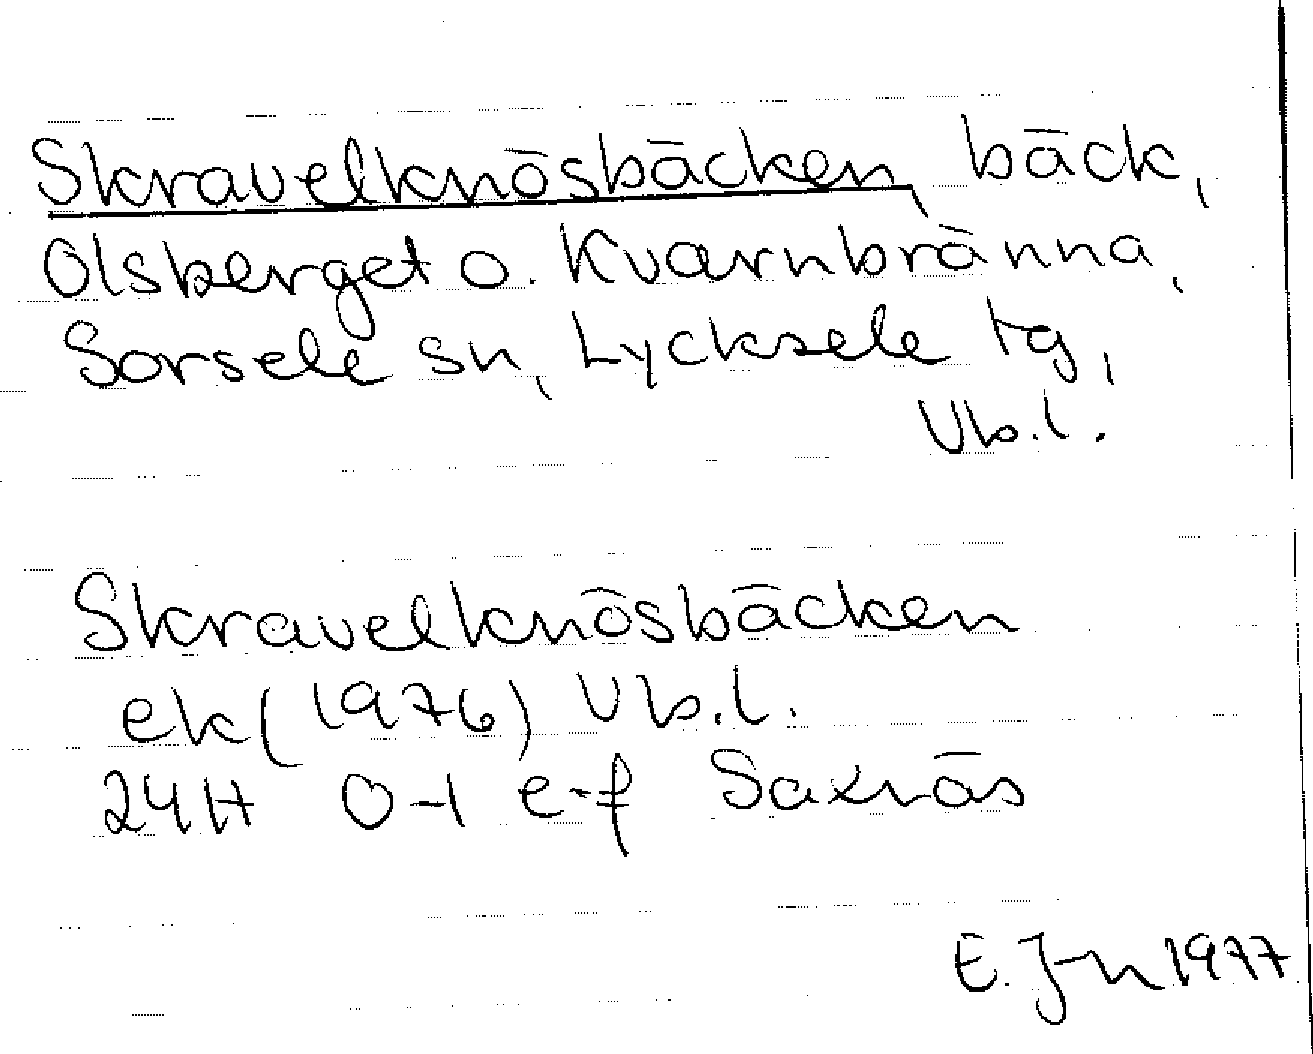 Skravelknösbäcken, bäck,
Olsberget o. Kvarnbränna,
Sorsele sn, Lycksele tg,
Vb.l.
Skravelknösbäcken
ek(1976) Vb.l.
24H 0-1 e-f Saxnäs
E. J-n 1977